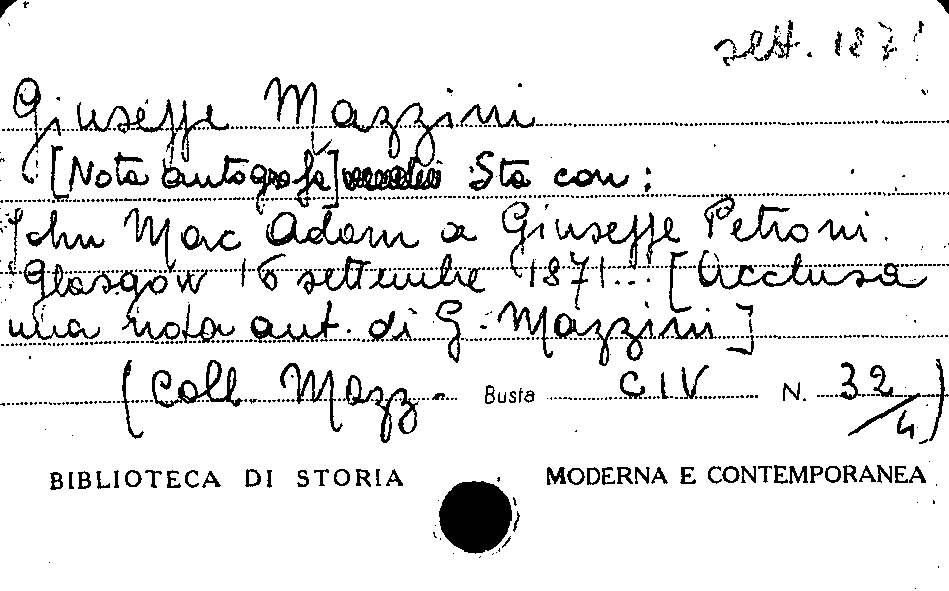 sett. 1871
Giuseppe Mazzini
[Nota autografa] Sta con:
John Mac Adam a Giuseppe Petroni.
Glasgow 16 settembre 1871... [Acclusa
una nota aut. di G. Mazzini]
(Coll. Mazz. Busta CIV N. 32/4)
BIBLIOTECA DI STORIA MODERNA E CONTEMPORANEA